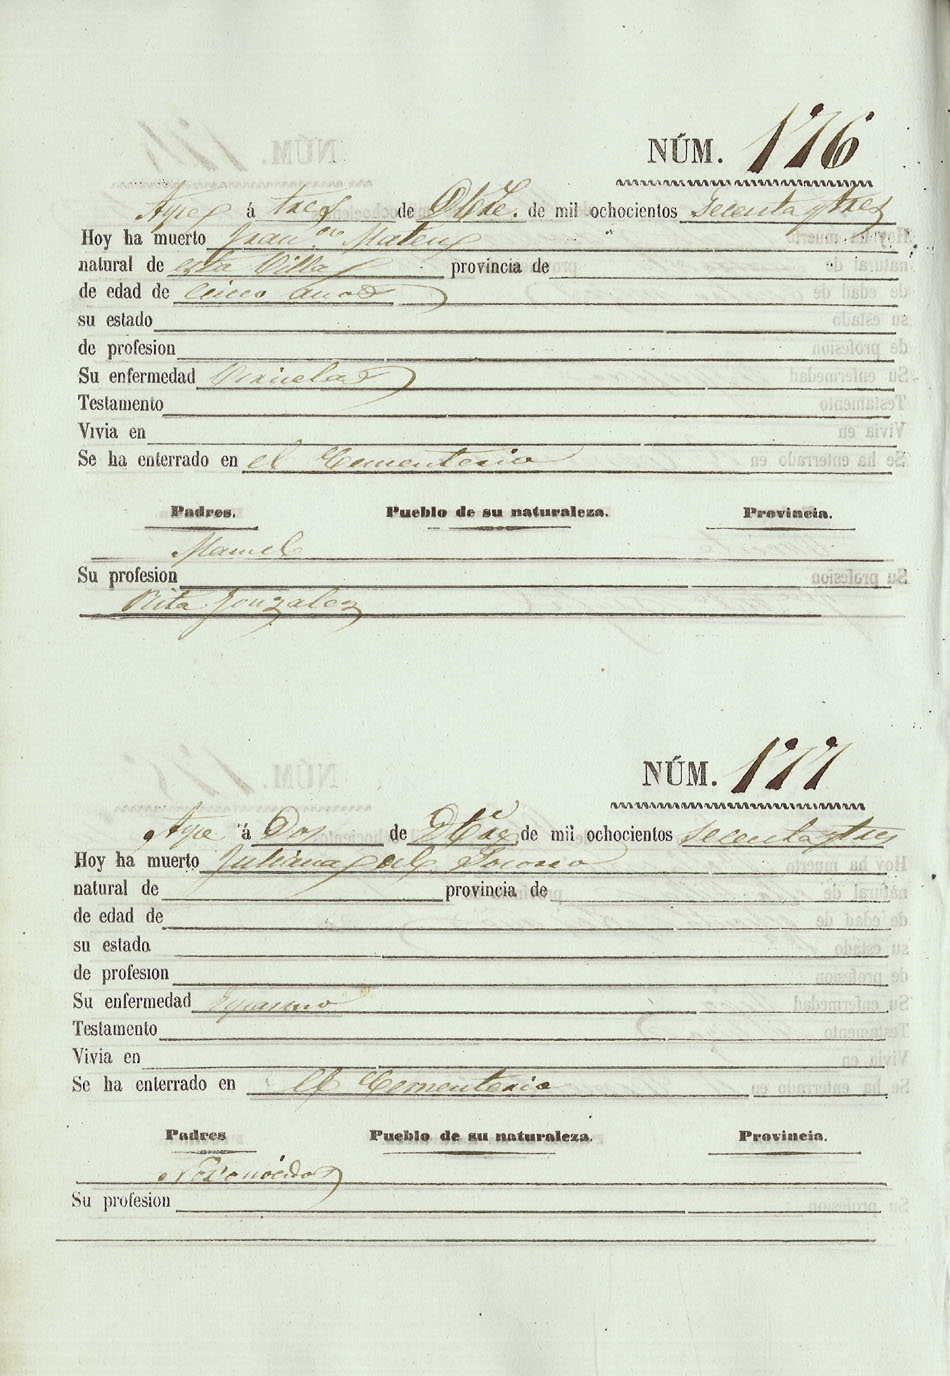 NÚM. 176
á tres de Dbre. de mil ochocientos secenta y tres
Hoy ha muerto Fran.co Mateus
natural de esta Villa provincia de
de edad de cinco años
su estado
de profesion
Su enfermedad Viruelas
Testamento
Vivia en
Se ha enterrado en el Cementerio
Padres. Pueblo de su naturaleza. Provincia.
Manuel
Su profesion
Rita Gonzalez
NÚM. 177
á Dos de de mil ochocientos secenta y tres
Hoy ha muerto Juliana del Socorro
natural de provincia de
de edad de
su estado
de profesion
Su enfermedad Espasmo
Testamento
Vivia en
Se ha enterrado en el Cementerio
Padres Pueblo de su naturaleza. Provincia.
No conocidos
Su profesion